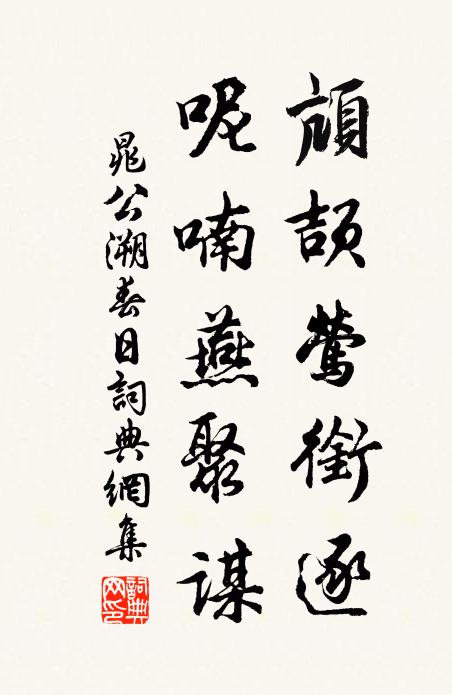 頏頡鶯銜逐
呢喃燕聚謀
晁公溯春日詞典網集
詞典網印